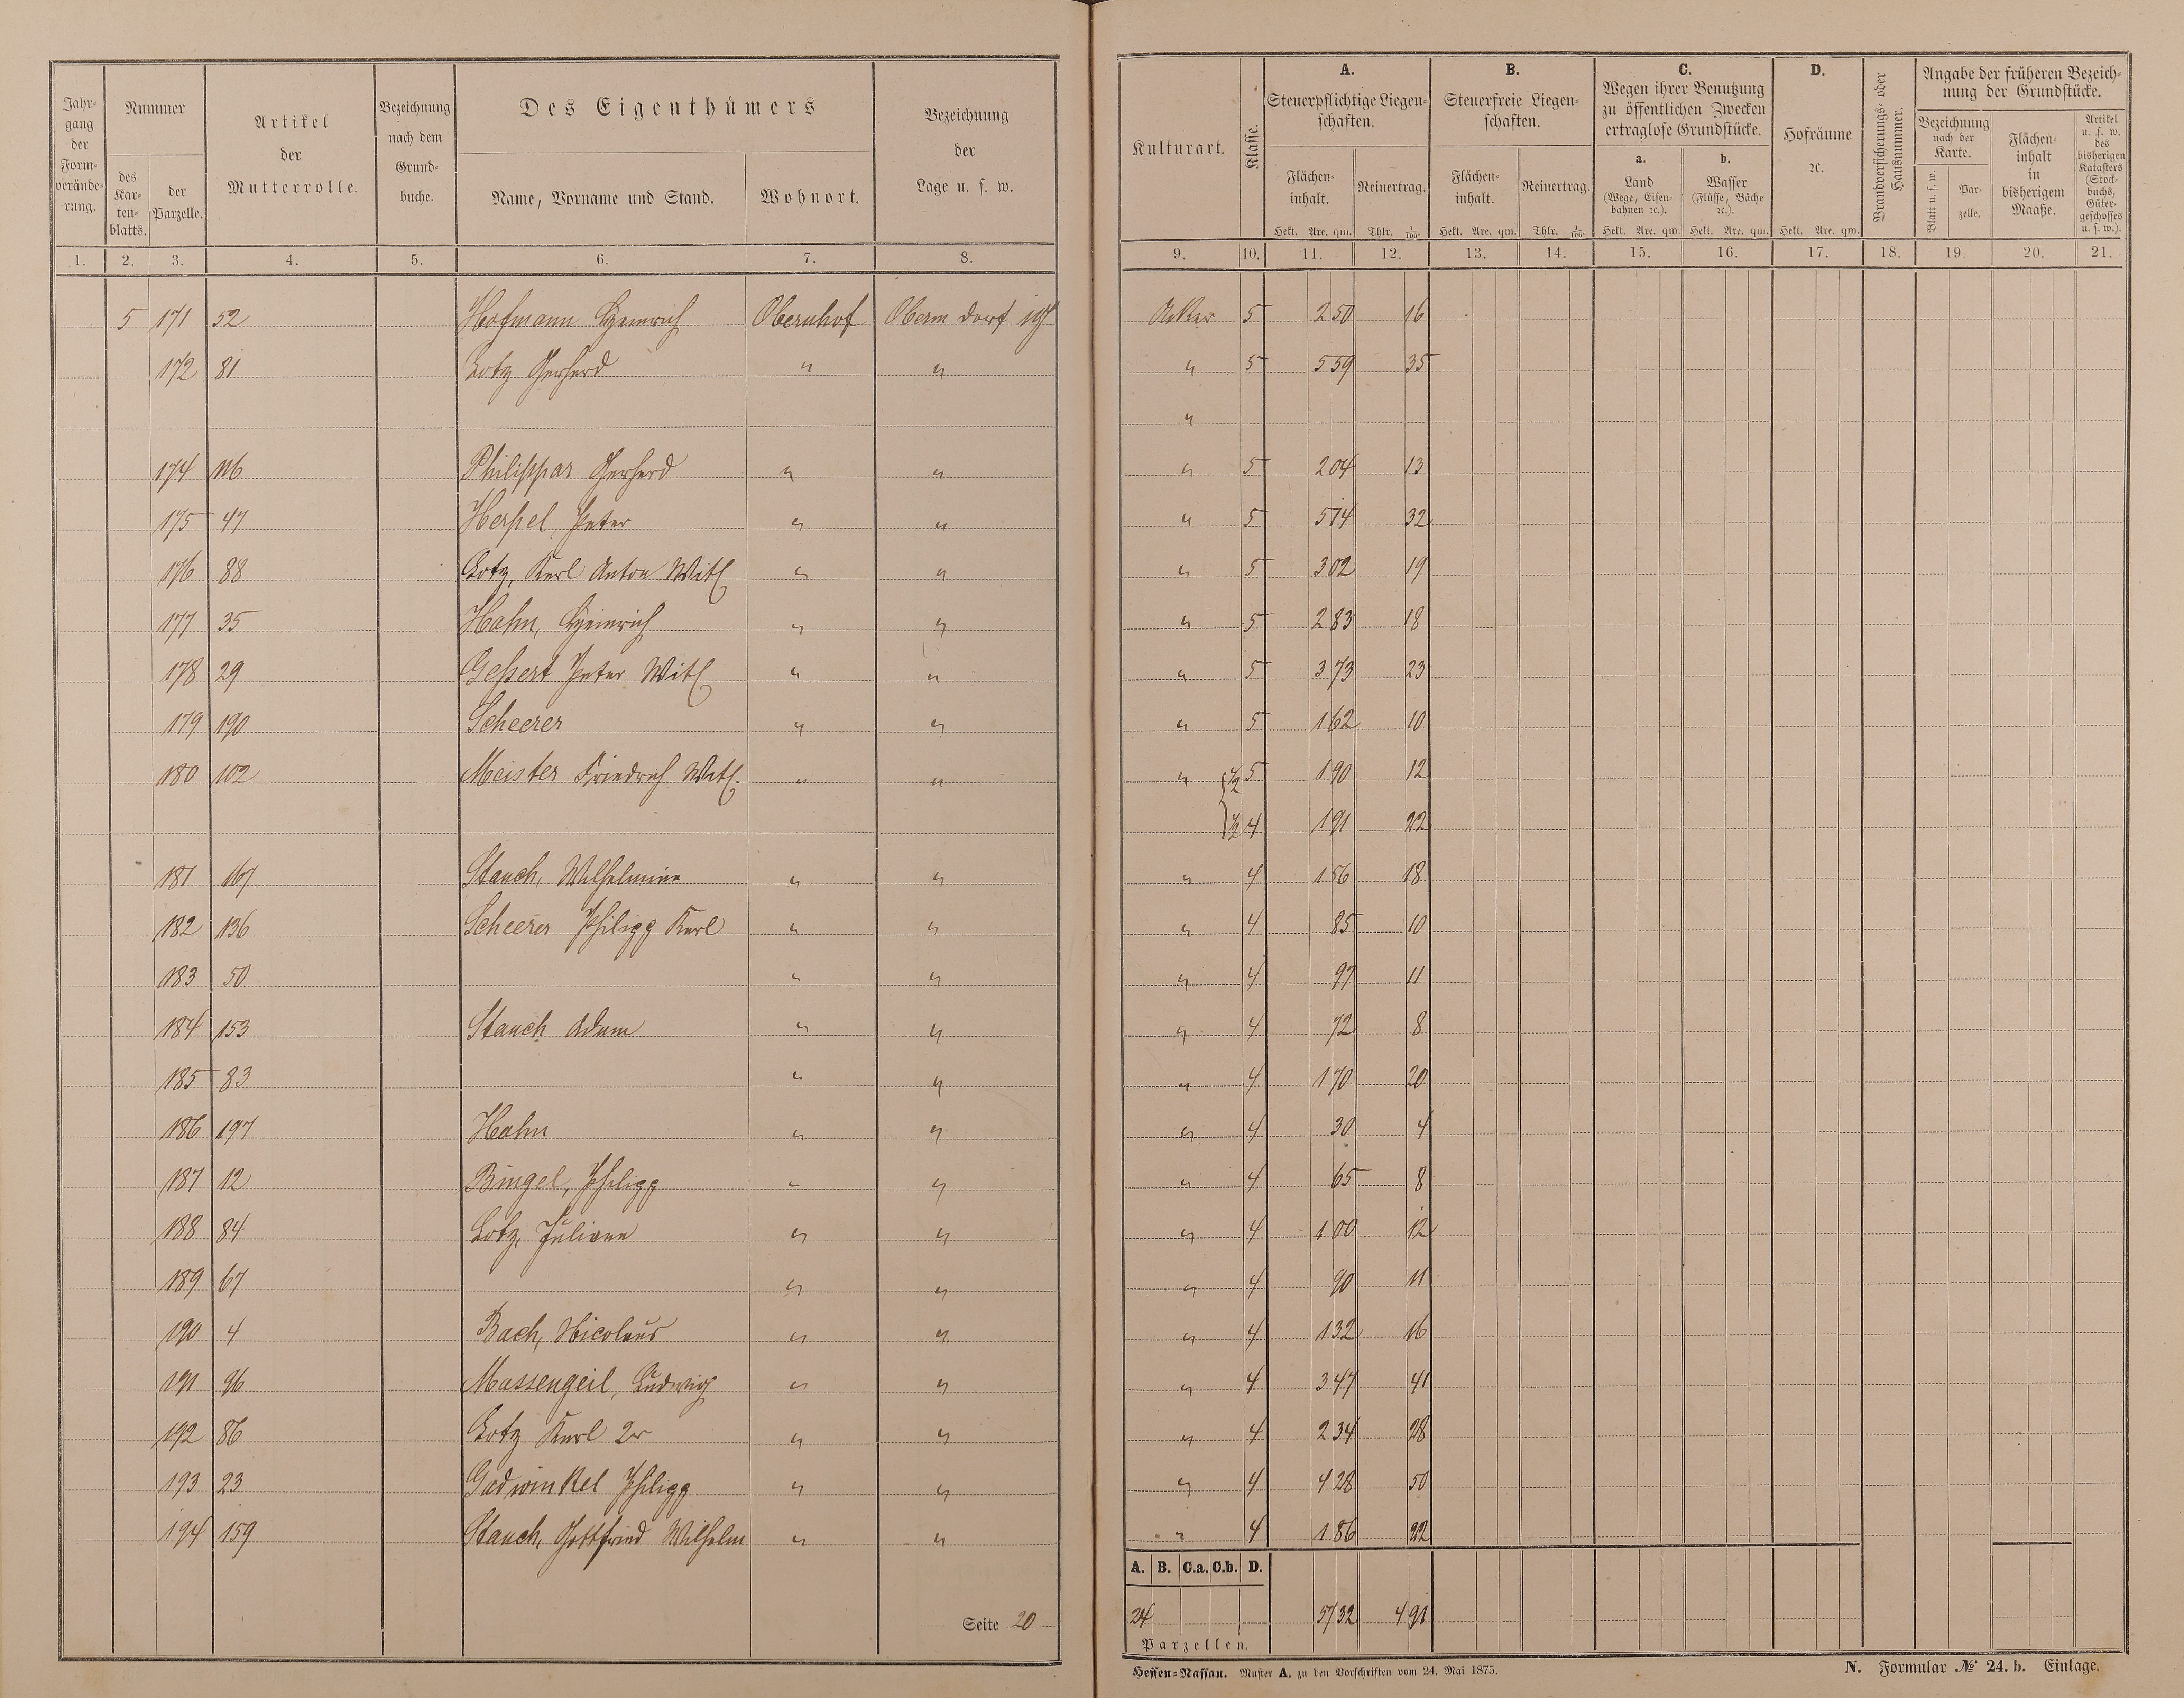 Jahrgang der Formverände-rung.
Nummer
des Kar-ten-blatts.
der Parzelle.
Artikel der Mutterrolle.
Bezeichnung nach dem Grund-buche.
Des Eigenthümers
Name, Vorname und Stand.
Wohnort.
Bezeichnung der Lage u. s. w.
1. 2. 3. 4. 5. 6. 7. 8.
5 171 52 Hofmann Heinrich Obernhof Oberm Dorf
172 81 Lotz Gerhard " "
174 116 Philippar Gerhard " "
175 47 Herpel Peter " "
176 88 Lotz, Karl Anton Witl " "
177 35 Hahn, Heinrich " "
178 29 Geßert Peter Witl " "
179 190 Scheerer " "
180 102 Meister Friedrich Witl. " "
181 167 Stauch, Wilhelmine " "
182 136 Scheerer Philipp Karl " "
183 50 " "
184 153 Stauch Adam " "
185 83 " "
186 197 Hahn " "
187 12 Bingel, Philipp " "
188 84 Lotz, Juliane " "
189 67 " "
190 4 Bach, Nicolaus " "
191 96 Massengeil, Ludwig " "
192 86 Lotz Karl 2r " "
193 23 Gadwinkel Philipp " "
194 159 Stauch, Gottfried Wilhelm " "
Seite 20
Kulturart.
Klasse.
A.
Steuerpflichtige Liegen-schaften.
Flächen-inhalt.
Hekt. Are. qm.
Reinertrag.
Thlr. 1/100
B.
Steuerfreie Liegen-schaften.
Flächen-inhalt.
Hekt. Are. qm.
Reinertrag.
Thlr. 1/100
C.
Wegen ihrer Benutzung zu öffentlichen Zwecken ertraglose Grundstücke.
a.
Land
(Wege, Eisen-bahnen ꝛc.).
Hekt. Are. qm.
b.
Wasser
(Flüsse, Bäche ꝛc.).
Hekt. Are. qm.
D.
Hofräume ꝛc.
Hekt. Are. qm.
Brandversicherungs- oder Hausnummer.
Angabe der früheren Bezeich-nung der Grundstücke.
Bezeichnung nach der Karte.
Blatt u. s. w.
Par-zelle.
Flächen-inhalt in bisherigem Maaße.
Artikel u. s. w. des bisherigen Katasters (Stock-buchs, Güter-geschosses u. s. w.).
9. 10. 11. 12. 13. 14. 15. 16. 17. 18. 19. 20. 21.
Acker 5 2 50 16
" 5 5 59 35
"
" 5 2 04 13
" 5 5 14 32
" 5 3 02 19
" 5 2 83 18
" 5 3 73 23
" 5 1 62 10
" 1/2 5 1 90 12
1/2 4 1 91 22
" 4 1 56 18
" 4 85 10
" 4 97 11
" 4 72 8
" 4 1 70 20
" 4 30 4
" 4 65 8
" 4 1 00 12
" 4 90 11
" 4 1 32 16
" 4 3 47 41
" 4 2 34 28
" 4 4 28 50
" 4 1 86 22
A. B. C.a. C.b. D.
24 57 32 4 91
Parzellen.
Hessen-Nassau. Muster A. zu den Vorschriften vom 24. Mai 1875.
N. Formular № 24. b. Einlage.